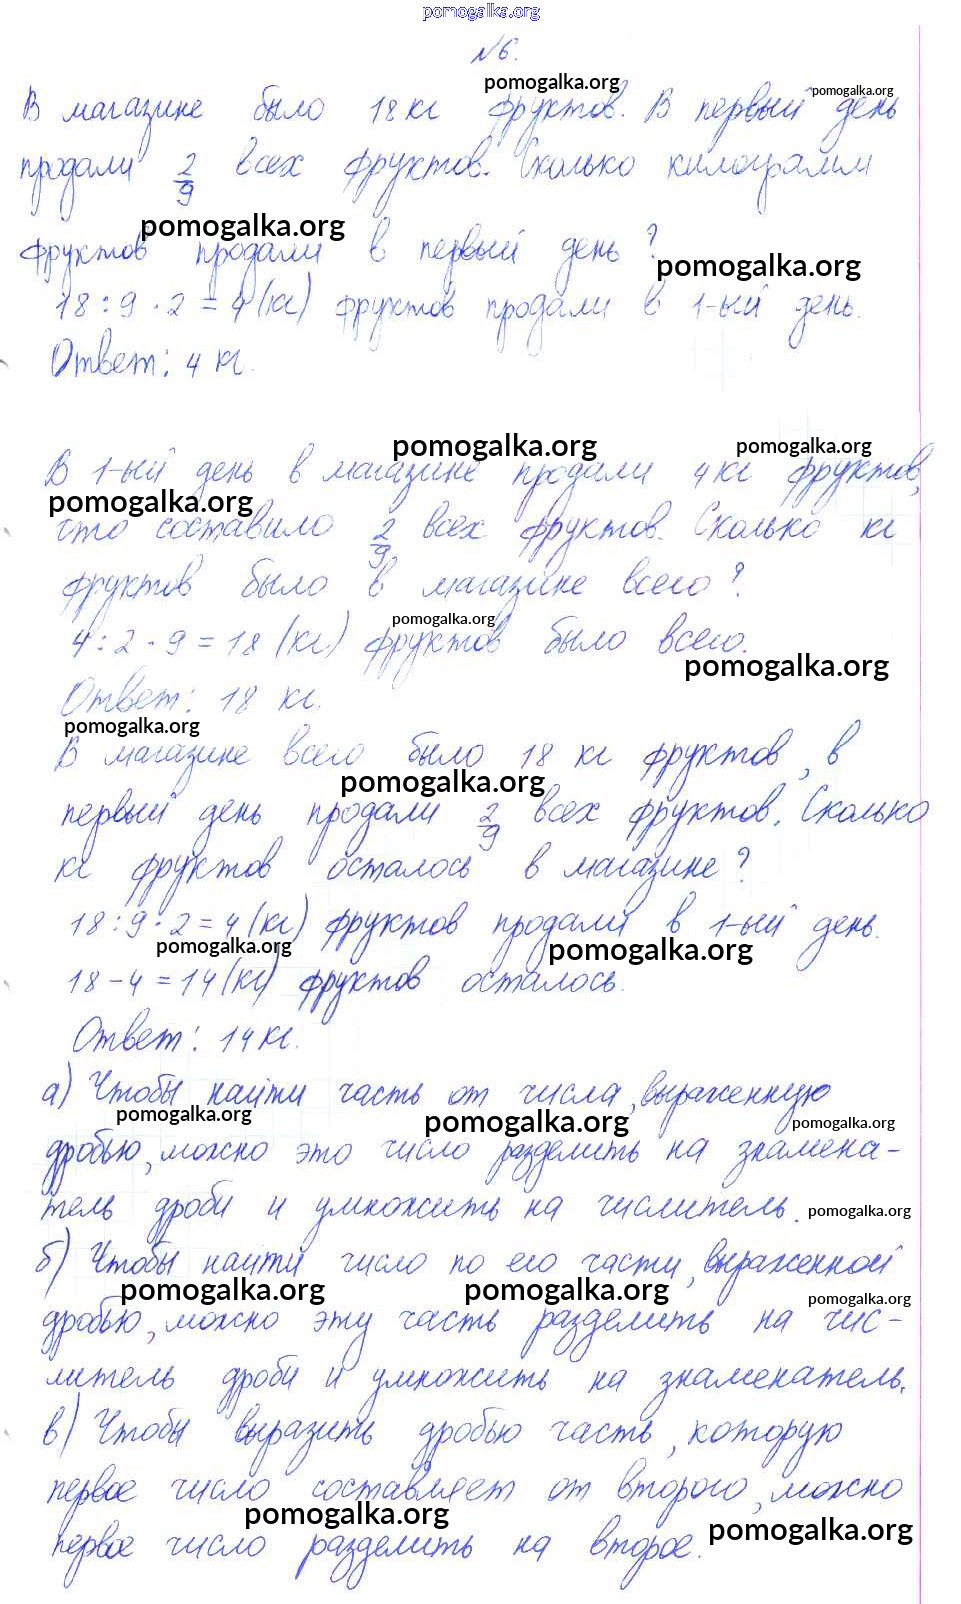 pomogalka.org
№6.
pomogalka.org
pomogalka.org
В магазине было 18 кг фруктов. В первый день
продали 2/9 всех фруктов. Сколько килограмм
pomogalka.org
фруктов продали в первый день?
pomogalka.org
18 : 9 · 2 = 4 (кг) фруктов продали в 1-ый день.
Ответ: 4 кг.
pomogalka.org
pomogalka.org
В 1-ый день в магазине продали 4 кг фруктов,
pomogalka.org
что составило 2/9 всех фруктов. Сколько кг
фруктов было в магазине всего?
pomogalka.org
4 : 2 · 9 = 18 (кг) фруктов было всего.
pomogalka.org
Ответ: 18 кг.
pomogalka.org
В магазине всего было 18 кг фруктов, в
pomogalka.org
первый день продали 2/9 всех фруктов. Сколько
кг фруктов осталось в магазине?
18 : 9 · 2 = 4 (кг) фруктов продали в 1-ый день.
pomogalka.org
pomogalka.org
18 - 4 = 14 (кг) фруктов осталось.
Ответ: 14 кг.
а) Чтобы найти часть от числа, выраженную
pomogalka.org
pomogalka.org
pomogalka.org
дробью, можно это число разделить на знамена-
тель дроби и умножить на числитель.
pomogalka.org
б) Чтобы найти число по его части, выраженной
pomogalka.org
pomogalka.org
pomogalka.org
дробью, можно эту часть разделить на чис-
литель дроби и умножить на знаменатель.
в) Чтобы выразить дробью часть, которую
первое число составляет от второго, можно
pomogalka.org
pomogalka.org
первое число разделить на второе.